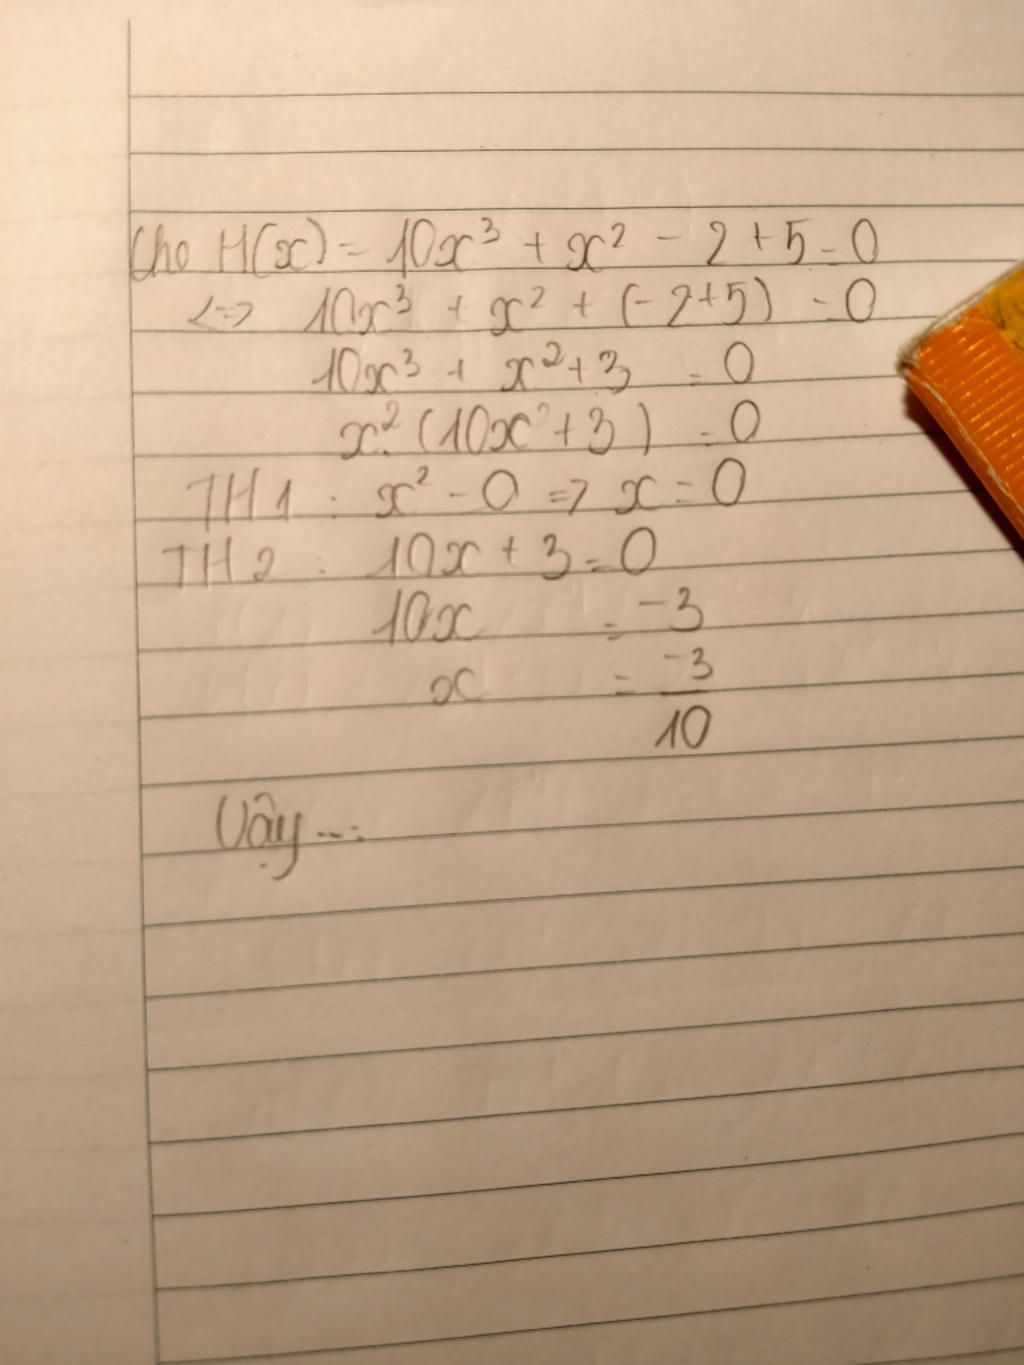 Cho H(x) = 10x³ + x² - 2 + 5 = 0
<=> 10x³ + x² + (-2+5) = 0
10x³ + x² + 3 = 0
x² (10x + 3) = 0
TH1 : x² = 0 => x = 0
TH2 : 10x + 3 = 0
10x = -3
x = -3/10
Vậy ...